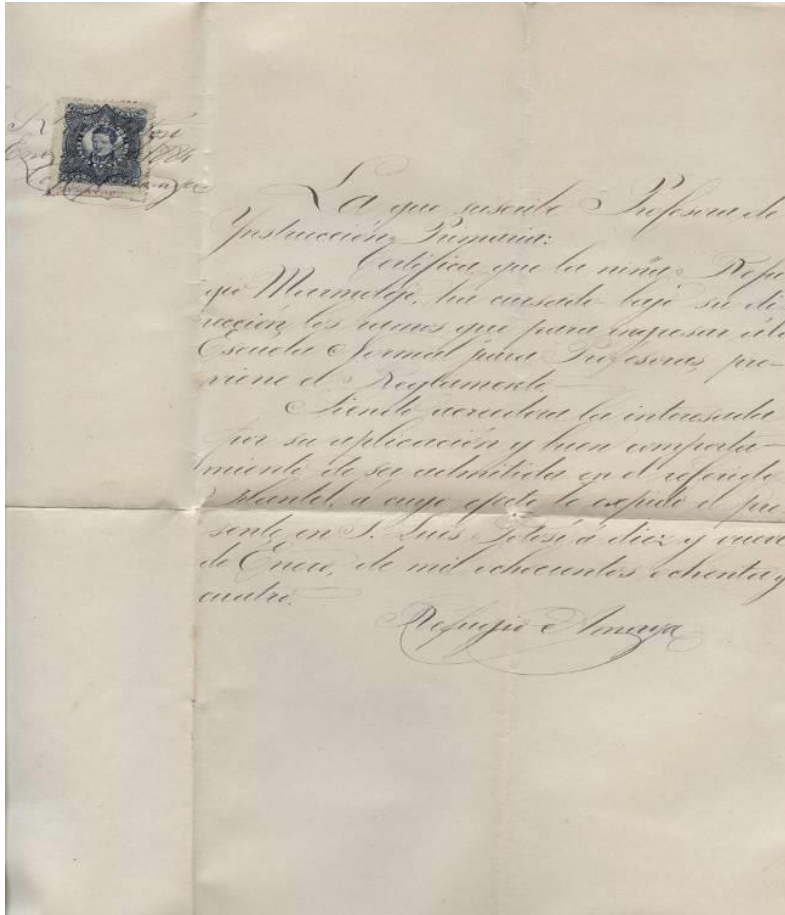 Enero 1884
La que suscribe Profesora de
Instrucción Primaria:
Certifica que la niña Refu
gio Marmolejo, ha cursado bajo su di
rección, los ramos que para ingresar á la
Escuela Normal para Profesoras, pre-
viene el Reglamento.
Siendo acreedora la interesada
por su aplicación y buen comporta-
miento de ser admitida en el referido
Plantel, a cuyo efecto le expido el pre
sente en S. Luis Potosí á diez y nueve
de Enero, de mil ochocientos ochenta y
cuatro.
Refugio Amaya